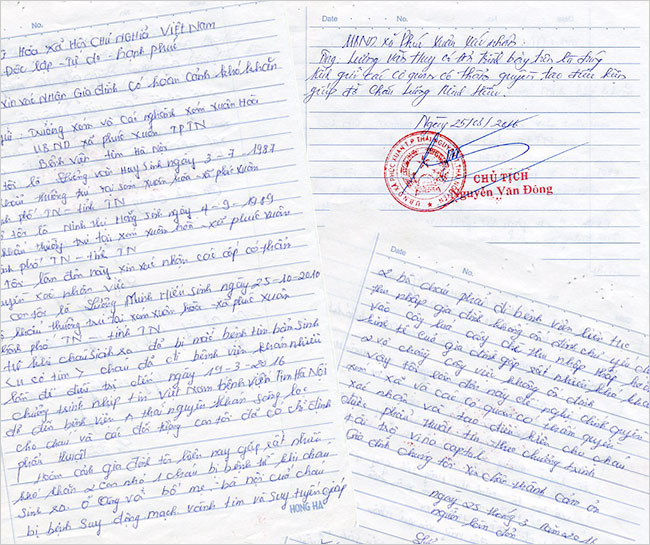 G Hòa Xã Hội Chủ Nghĩa Việt Nam
Độc lập - Tự do - hạnh phúc
Xin xác Nhận Gia đình Có hoàn cảnh khó khăn
Trưởng xóm và Cai nghành xóm xuân Hòa
UBND xã phúc xuân TPTN
Bệnh viện tim Hà Nội
tôi là Lương văn Huy Sinh ngày 3-7-1987
khẩu thường trú tại xóm xuân hòa - xã phúc xuân
thành phố TN - tỉnh TN
tôi là Ninh thị Hằng sinh ngày 4-9-1989
khẩu thường trú tại xóm xuân hòa - xã phúc xuân
thành phố TN - tỉnh TN
tôi làm đơn này xin xác nhận các cấp có thẩm
quyền xác nhận việc
Con tôi là Lương Minh Hiếu Sinh ngày 25-10-2010
khẩu thường trú tại xóm xuân hòa - xã phúc xuân
thành phố TN - tỉnh TN
từ khi cháu Sinh ra đã bị mắc bệnh tim bẩm Sinh
đã đi bệnh viện khám nhiều
lần để điều trị đến ngày 19-3-2016
chương trình nhịp tim Việt Nam bệnh viện Tim Hà Nội
đã đến bệnh viện A thái nguyên khám sàng lọc
cho cháu và cái đối tượng con tôi đã có chỉ định
phẫu thuật
Hoàn cảnh gia đình tôi hiện nay gặp rất nhiều
khó khăn 2 con nhỏ 1 cháu bị bệnh từ khi cháu
Sinh ra ở cùng với bố mẹ bà nội của cháu
bị bệnh Suy động mạch vành tim và Suy tuyến giáp
HONG HA
Date No.
UBND xã Phúc Xuân Xác nhận:
Ông Lương Văn Huy có trình bày trên là đúng
kính gửi các cơ quan có thẩm quyền tạo điều kiện
giúp đỡ Cháu Lương Minh Hiếu.
Ngày 25/03/2016
U.B.N.D XÃ PHÚC XUÂN T.P THÁI NGUYÊN
CHỦ TỊCH
Nguyễn Văn Đông
Date No.
bố cháu phải đi bệnh viện liên tục
thu nhập gia đình không ổn định chủ yếu dựa
vào cây lúa cây chè thu nhập thấp hoàn
kinh tế của gia đình gặp rất nhiều khó khăn
2 vợ chồng công việc không ổn định
vậy tôi làm đơn này đề nghị chính quyền
xóm xã và các cơ quan có thẩm quyền
xác nhận và tạo điều kiện cho cháu
được phẫu thuật tim theo chương trình
tài trợ vina capital
Gia đình chúng tôi xin chân thành cảm ơn
ngày 25 tháng 3 năm 2016
người làm đơn